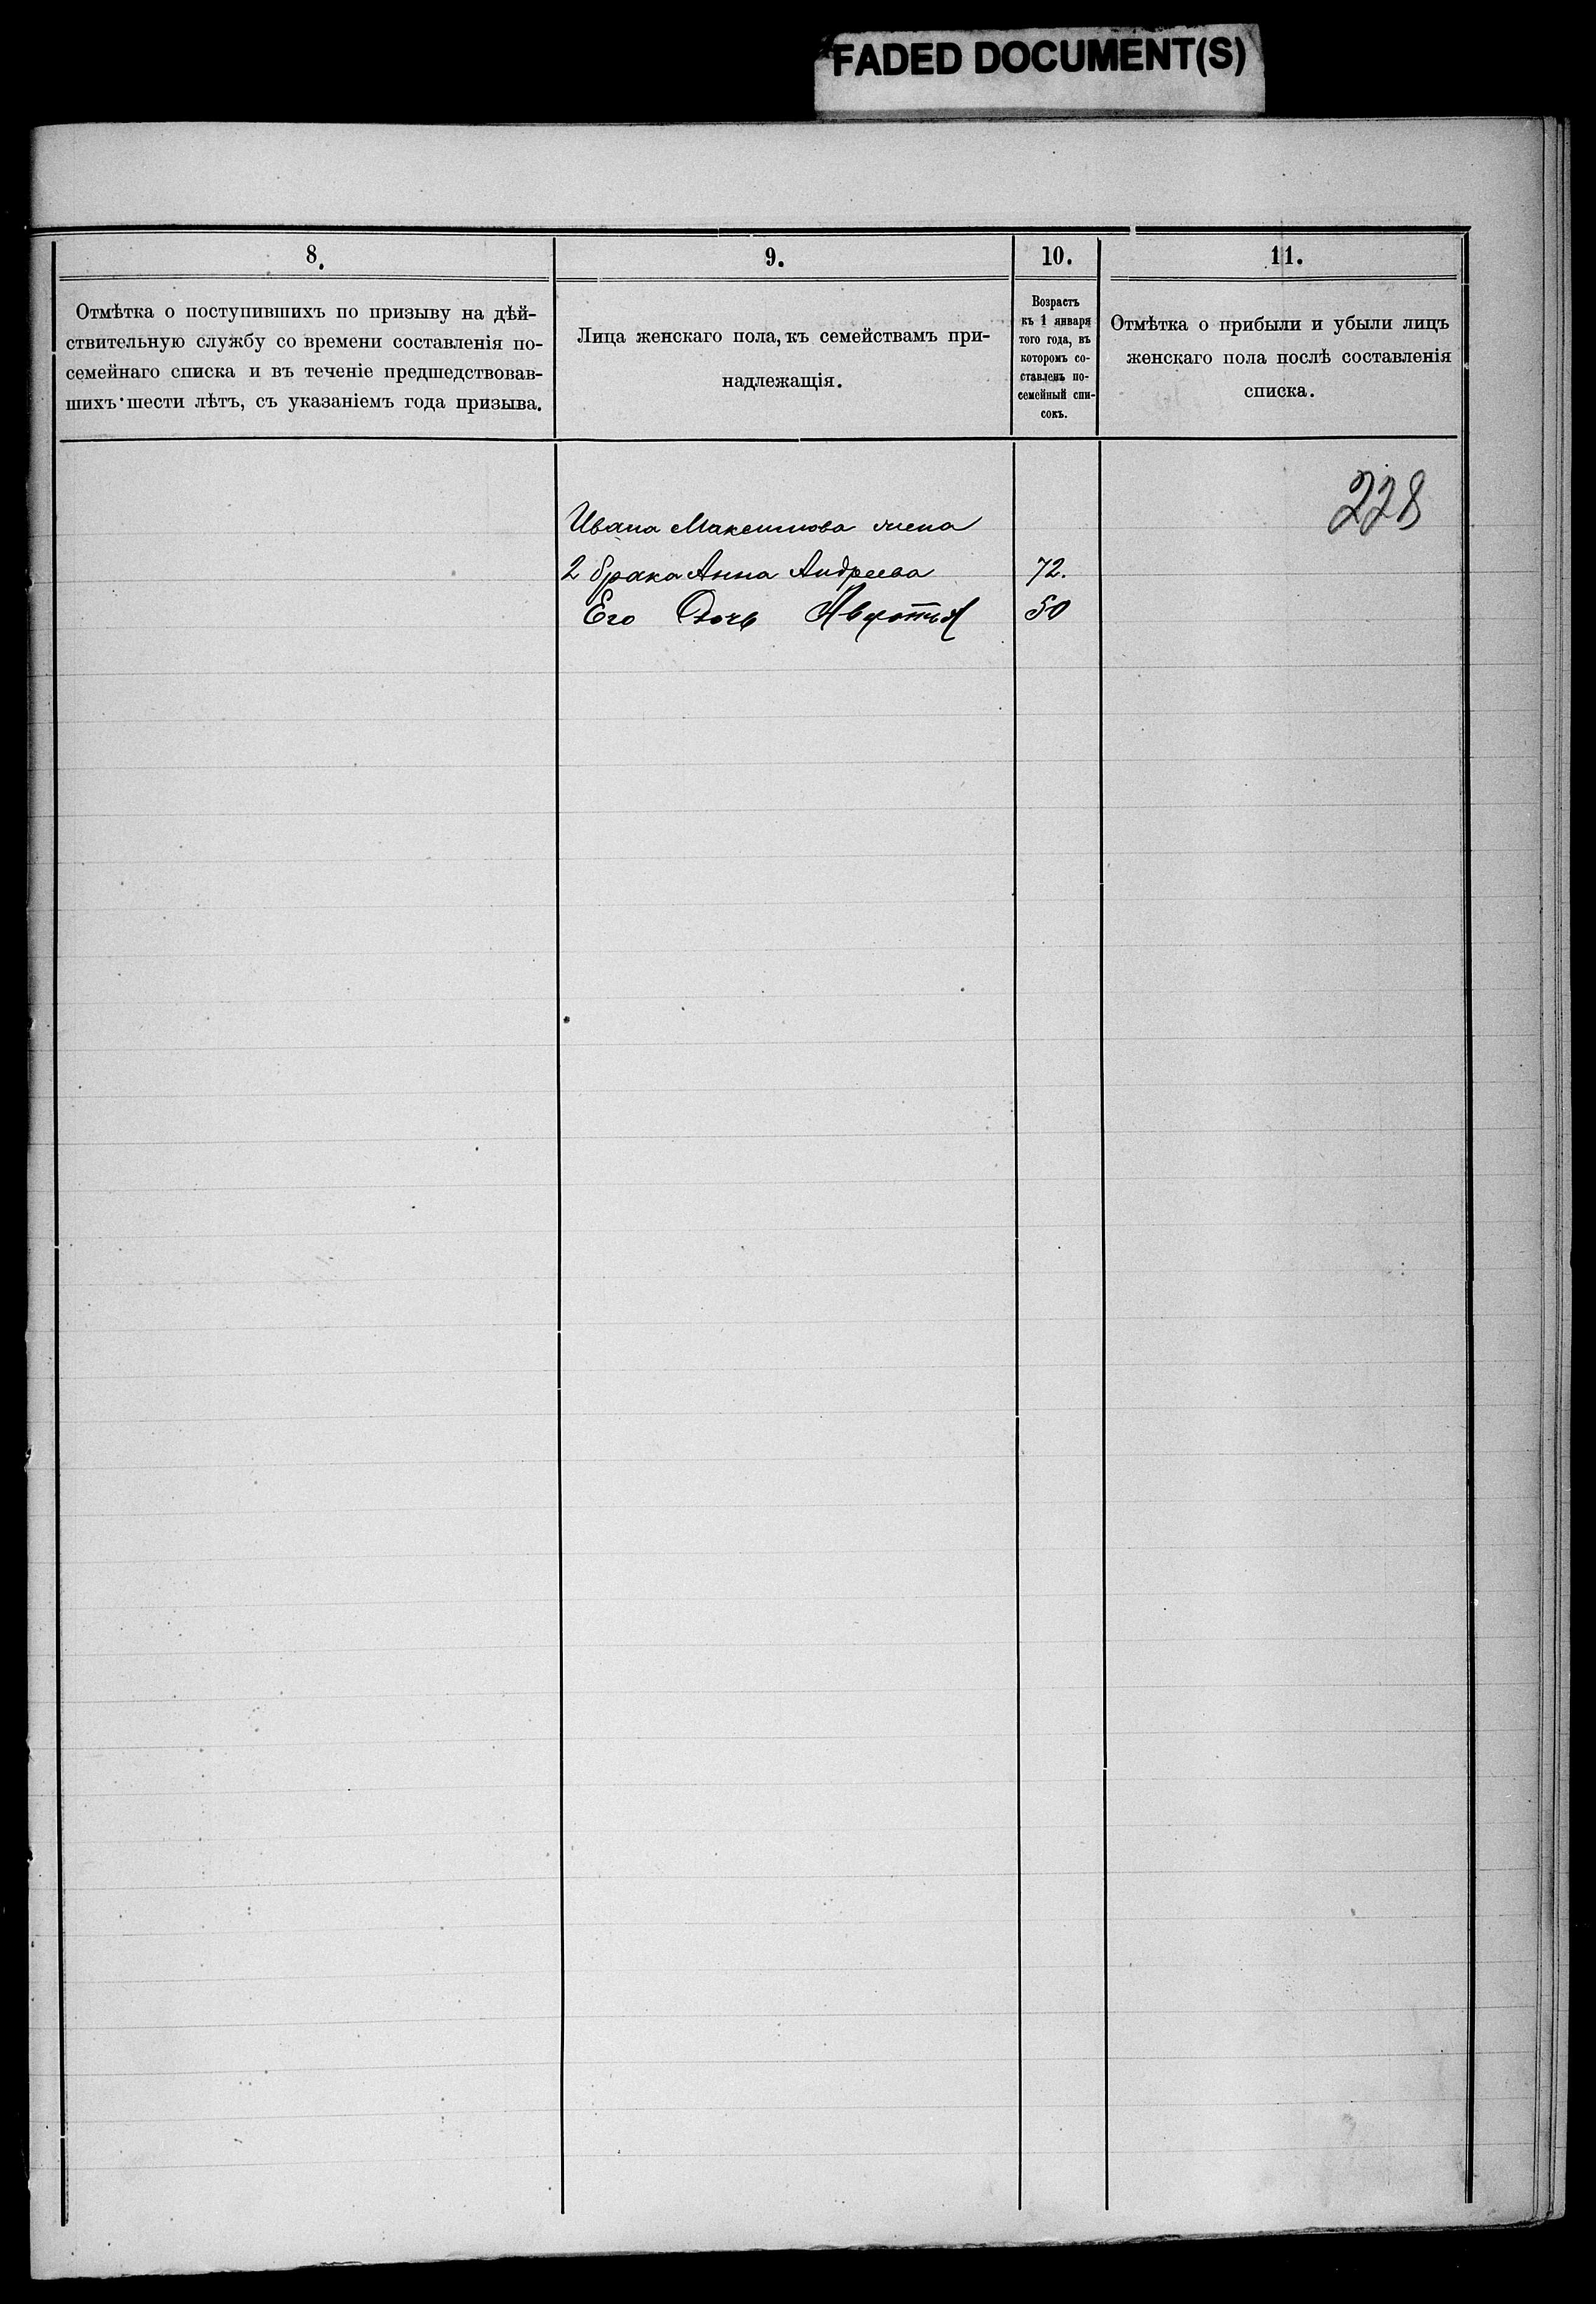 FADED DOCUMENT(S)
8.
Отмѣтка о поступившихъ по призыву на дѣй-
ствительную службу со времени составленія по-
семейнаго списка и въ теченіе предшедствовав-
шихъ шести лѣтъ, съ указаніемъ года призыва.
9.
Лица женскаго пола, къ семействамъ при-
надлежащія.
10.
Возрастъ
къ 1 января
того года, въ
которомъ со-
ставленъ по-
семейный спи-
сокъ.
11.
Отмѣтка о прибыли и убыли лицъ
женскаго пола послѣ составленія
списка.
228
Ивана Максимова жена
2 брака Анна Андреева 72.
Его Дочь Авдотья 50